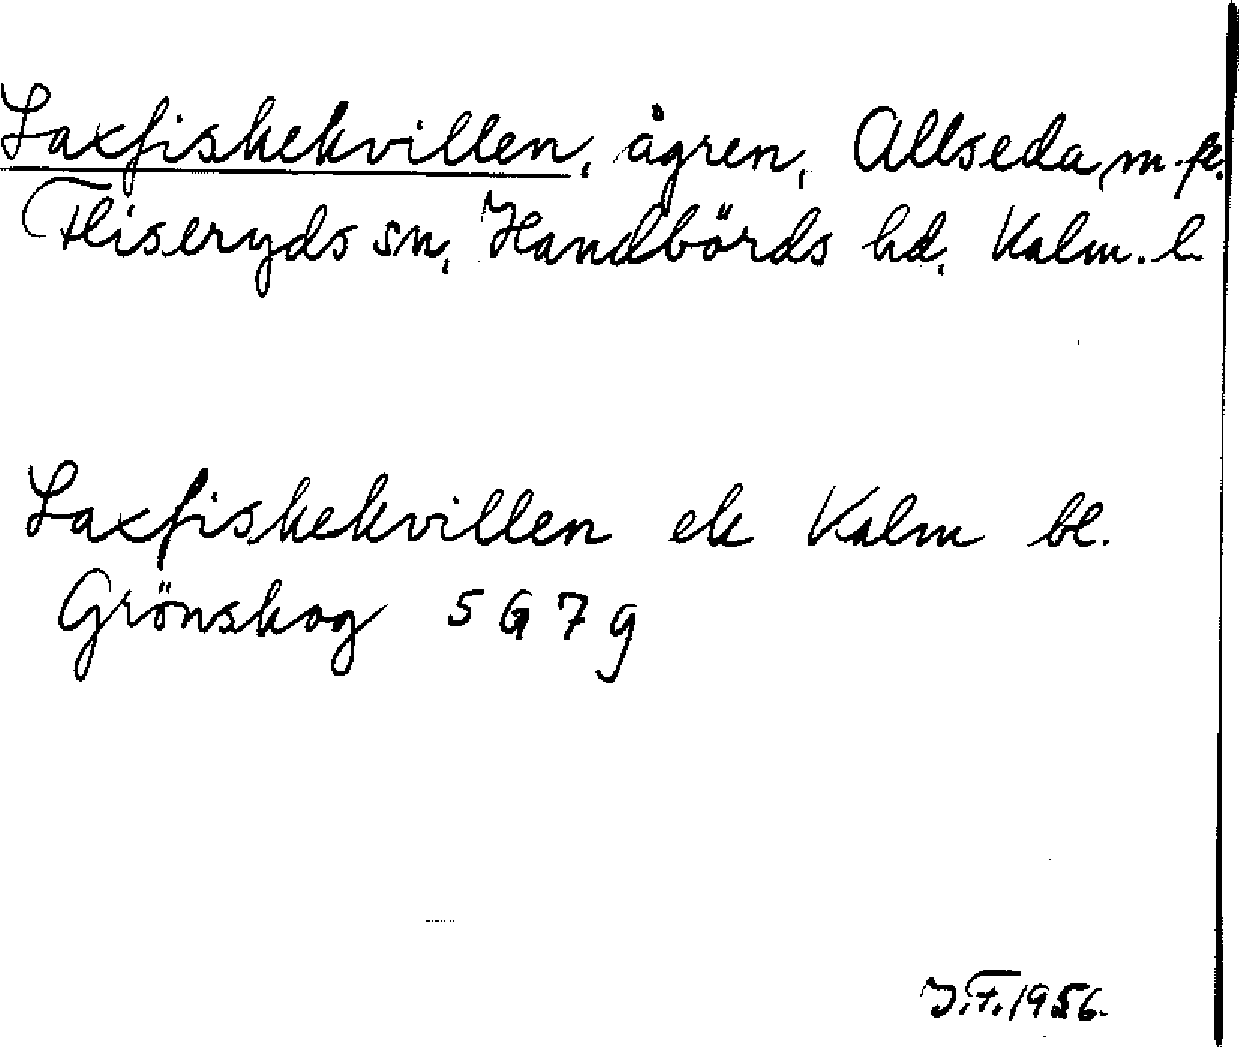 Laxfiskekvillen, ågren, Allseda, m. fl.
Fliseryds sn, Handbörds hd, Kalm. l.
Laxfiskekvillen ek Kalm bl.
Grönskog 5 G 7 g
J.F. 1956.